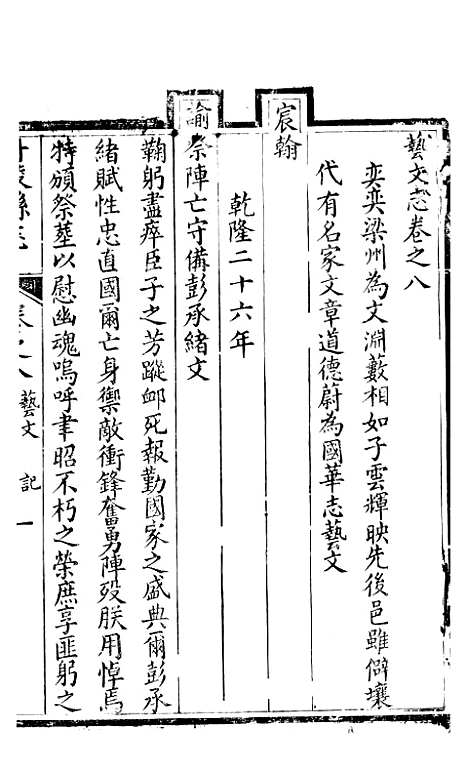 藝文志卷之八
奕奕梁州為文淵藪相如子雲輝映先後邑雖僻壤
代有名家文章道德蔚為國華志藝文
宸翰
乾隆二十六年
諭祭陣亡守備彭承緒文
鞠躬盡瘁臣子之芳蹤卹死報勤國家之盛典爾彭承
緒賦性忠直國爾亡身禦敵衝鋒奮勇陣歿朕用悼焉
特頒祭塟以慰幽魂嗚呼聿昭不朽之榮庶享匪躬之
縣志
卷之八
藝文 記 一